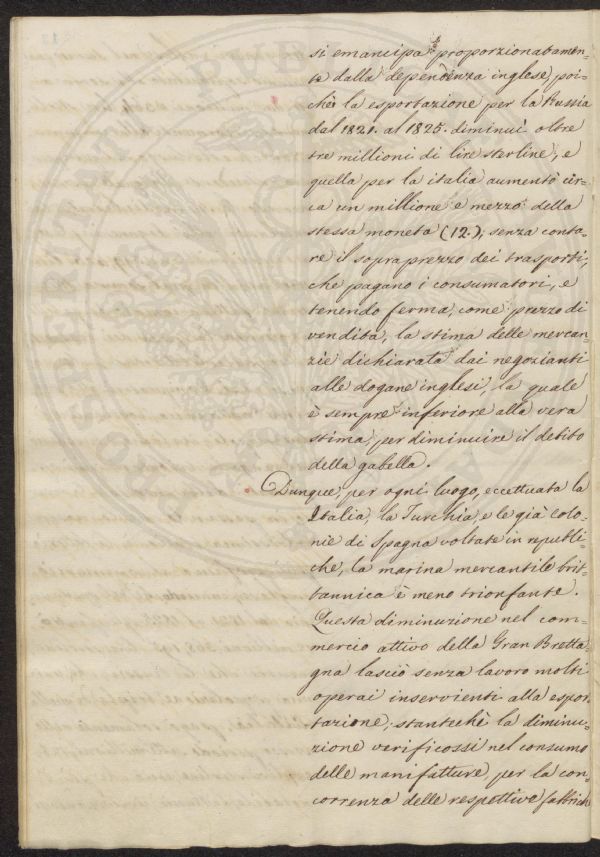 si emancipa proporzionatamen-
te dalla dependenza inglese, poi-
chè la esportazione per la Russia
dal 1821. al 1825. diminuì oltre
tre millioni di lire sterline, e
quella per la italia aumentò cir-
ca un millione e mezzo della
stessa moneta (12.), senza conta-
re il sopraprezzo dei trasporti,
che pagano i consumatori, e
tenendo ferma, come prezzo di
vendita, la stima delle mercan-
zie dichiarata dai negozianti
alle dogane inglesi, la quale
è sempre inferiore alla vera
stima, per diminuire il debito
della gabella.
Dunque, per ogni luogo, eccettuata la
Italia, la Turchia, e le già colo-
nie di Spagna voltate in republi-
che, la marina mercantile bri-
tannica è meno trionfante.
Questa diminuzione nel com-
mercio attivo della Gran Bretta-
gna lasciò senza lavoro molti
operai inservienti alla espor-
tazione, stantechè la diminu-
zione verificossi nel consumo
delle manifatture, per la con-
correnza delle respettive fabbriche